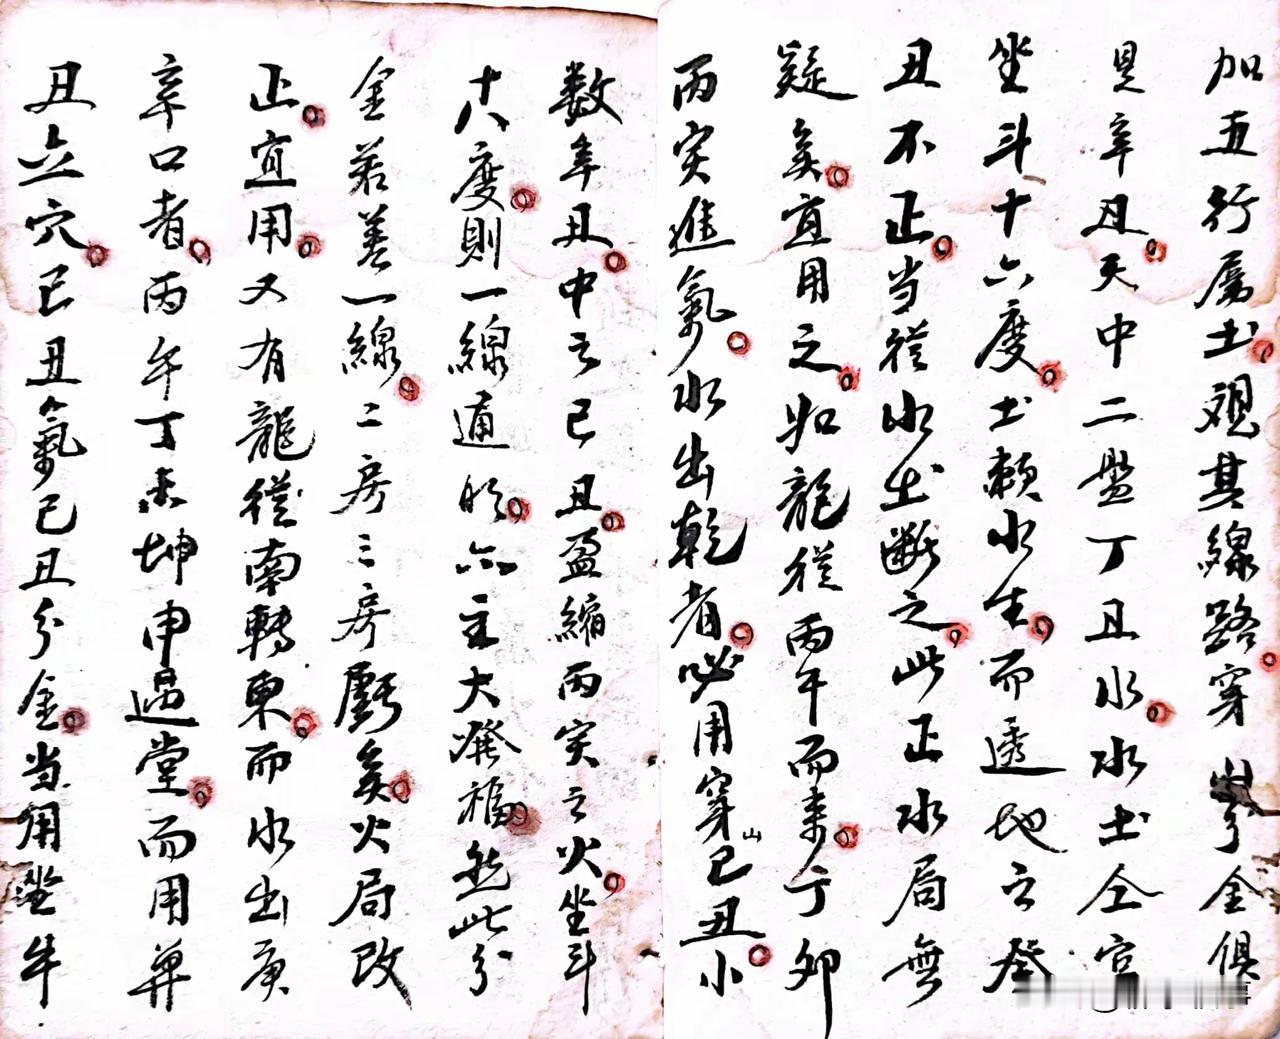 加五行屬土。觀其線路。穿山分金俱
是辛丑。天中二盤丁丑水。水土仝宫
坐斗十六度。土賴水生。而透地之癸
丑不正。当從水土断之。此正水局無
疑矣。宜用之。如龍從丙午而来。丁卯
丙突進氣。水出乾者。必用穿山己丑。小
数年丑。中之己丑。盈縮丙突之火。坐斗
十八度。則一線通的。六主大發福。然此分
金若差一線。二房三房虧矣。火局改
止。宜用。又有龍從南轉東。而水出庚
辛口者。丙午丁未坤申過堂。而用单
丑立穴。己丑氣己丑分金。当用坐牛